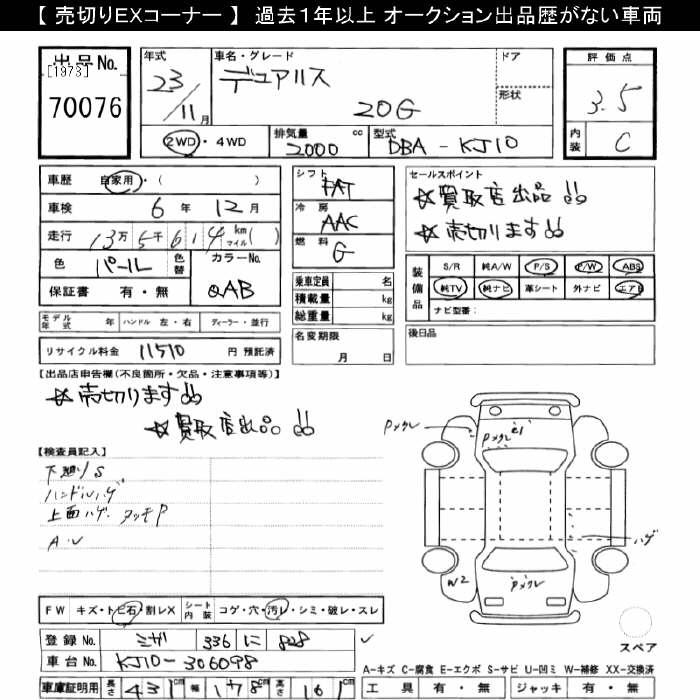 【 売切りEXコーナー 】 過去1年以上 オークション出品歴がない車両
出品No.
[1973]
70076
年式
23/11月
車名・グレード
デュアリス
20G
ドア
形状
評価点
3.5
内装
C
2WD・4WD
排気量
2000
cc
型式
DBA-KJ10
車歴
自家用・( )
車検
6年 12月
走行
13万5千614 km マイル( )
色
パール
色替
カラーNo.
QAB
保証書
有・無
シフト
FAT
冷房
AAC
燃料
G
乗車定員
名
積載量
kg
総重量
kg
名変期限
月 日
セールスポイント
☆買取店出品!!
☆売切ります!!
装備品
S/R
純A/W
P/S
P/W
ABS
純TV
純ナビ
革シート
外ナビ
エアB
ナビ型番:
後日品
モデル年式
年
ハンドル 左・右
ディーラー・並行
リサイクル料金 11510 円 預託済
【出品店申告欄(不良箇所・欠品・注意事項等)】
☆売切ります!!
☆買取店出品!!
【検査員記入】
下廻りS
ハンドルハゲ
上面ハゲ タッチP
A・U
Pメクレ
Pメクレ
e1
ハゲ
Pメクレ
W2
FW
キズ・トビ石・割レX
シート内装
コゲ・穴・汚レ・シミ・破レ・スレ
登録No.
336 に 828
車台No.
KJ10-306098
車庫証明用
長さ 431cm 幅 178cm 高さ 161cm
スペア
A-キズ C-腐食 E-エクボ S-サビ U-凹ミ W-補修 XX-交換済
工具 有・無
ジャッキ 有・無